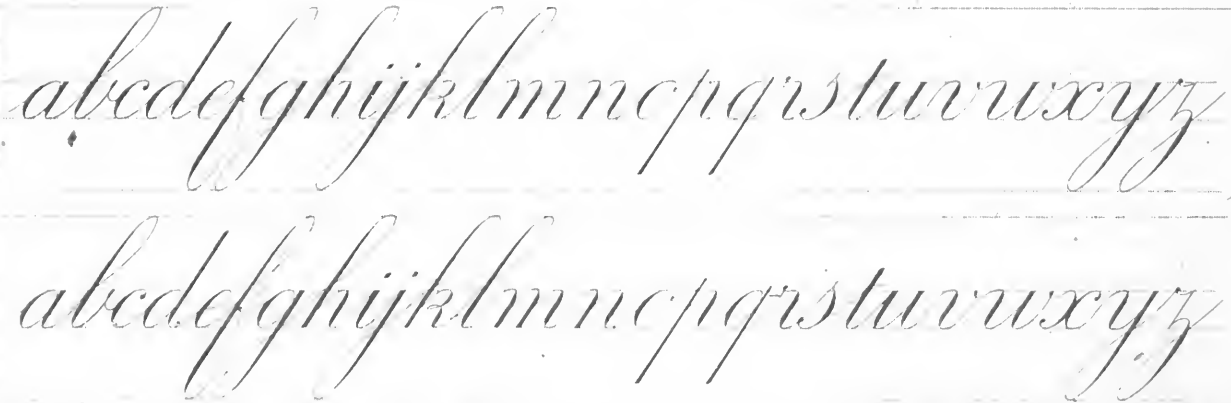 abcdefghijklmnopqrstuvwxyz
abcdefghijklmnopqrstuvwxyz